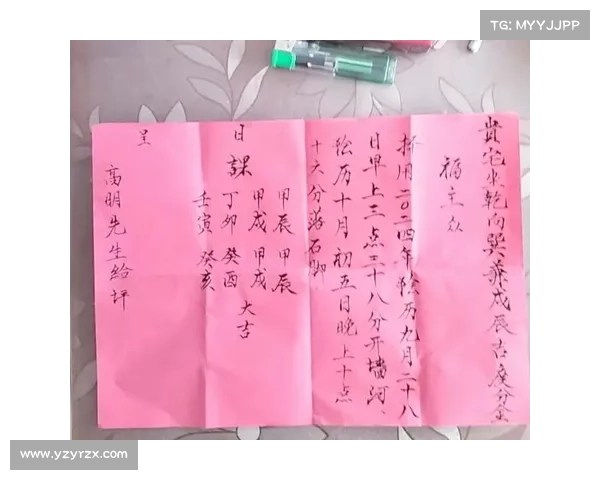 貴宅坐乾向巽兼戌辰吉度分金
福主众
择用二〇二四年农历九月二十八
日早上三点三十八分开墙沟、
农历十月初五日晚上十点
十六分落石脚
日課
甲辰 甲辰
甲戌 甲戌
丁卯 癸酉
壬寅 癸亥
大吉
呈
高明先生給坪
TG: MYYJJPP
www.yzyrzx.com